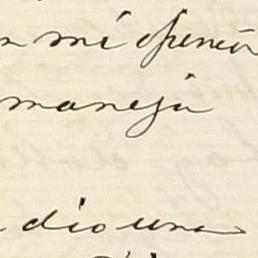 n mi opinión
maneja
dio una